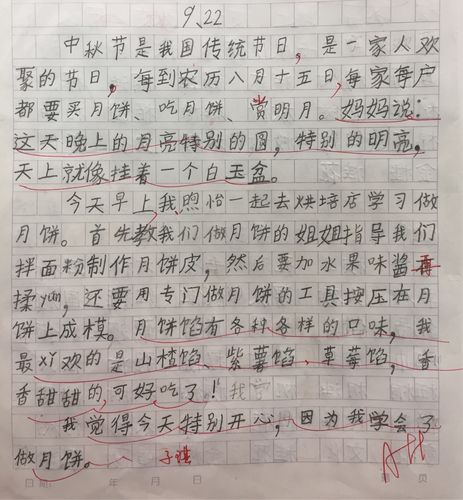 9.22
中秋节是我国传统节日，是一家人欢
聚的节日，每到农历八月十五日，每家每户
都要买月饼、吃月饼、赏明月。妈妈说：
这天晚上的月亮特别的圆，特别的明亮，
天上就像挂着一个白玉盆。
今天早上，我、煦怡一起去烘培店学习做
月饼。首先教我们做月饼的姐姐指导我们
拌面粉制作月饼皮，然后要加水果味酱再
揉yún，还要用专门做月饼的工具按压在月
饼上成模。月饼馅有各种各样的口味，我
最xǐ欢的是山楂馅、紫薯馅、草莓馅，香
香甜甜的，可好吃了！
我觉得今天特别开心，因为我学会了
做月饼。 子淇
日期： 年 月 日 第 页